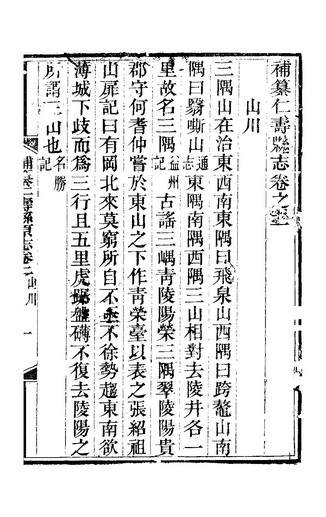 補纂仁壽縣志卷之二
山川
三隅山在治東西南東隅曰飛泉山西隅曰跨鼇山南
隅曰翳嘶山通志東隅南隅西隅三山相對去陵井各一
里故名三隅益州記古謠三嵎靑陵陽榮三隅翠陵陽貴
郡守何耆仲嘗於東山之下作靑榮臺以表之張紹祖
山扉記曰有岡北來莫窮所自不丞不徐勢趨東南欲
薄城下歧而爲三行且五里虎踞盤礴不復去陵陽之
所謂三山也名勝記
補纂仁壽縣原志卷二 山川 一